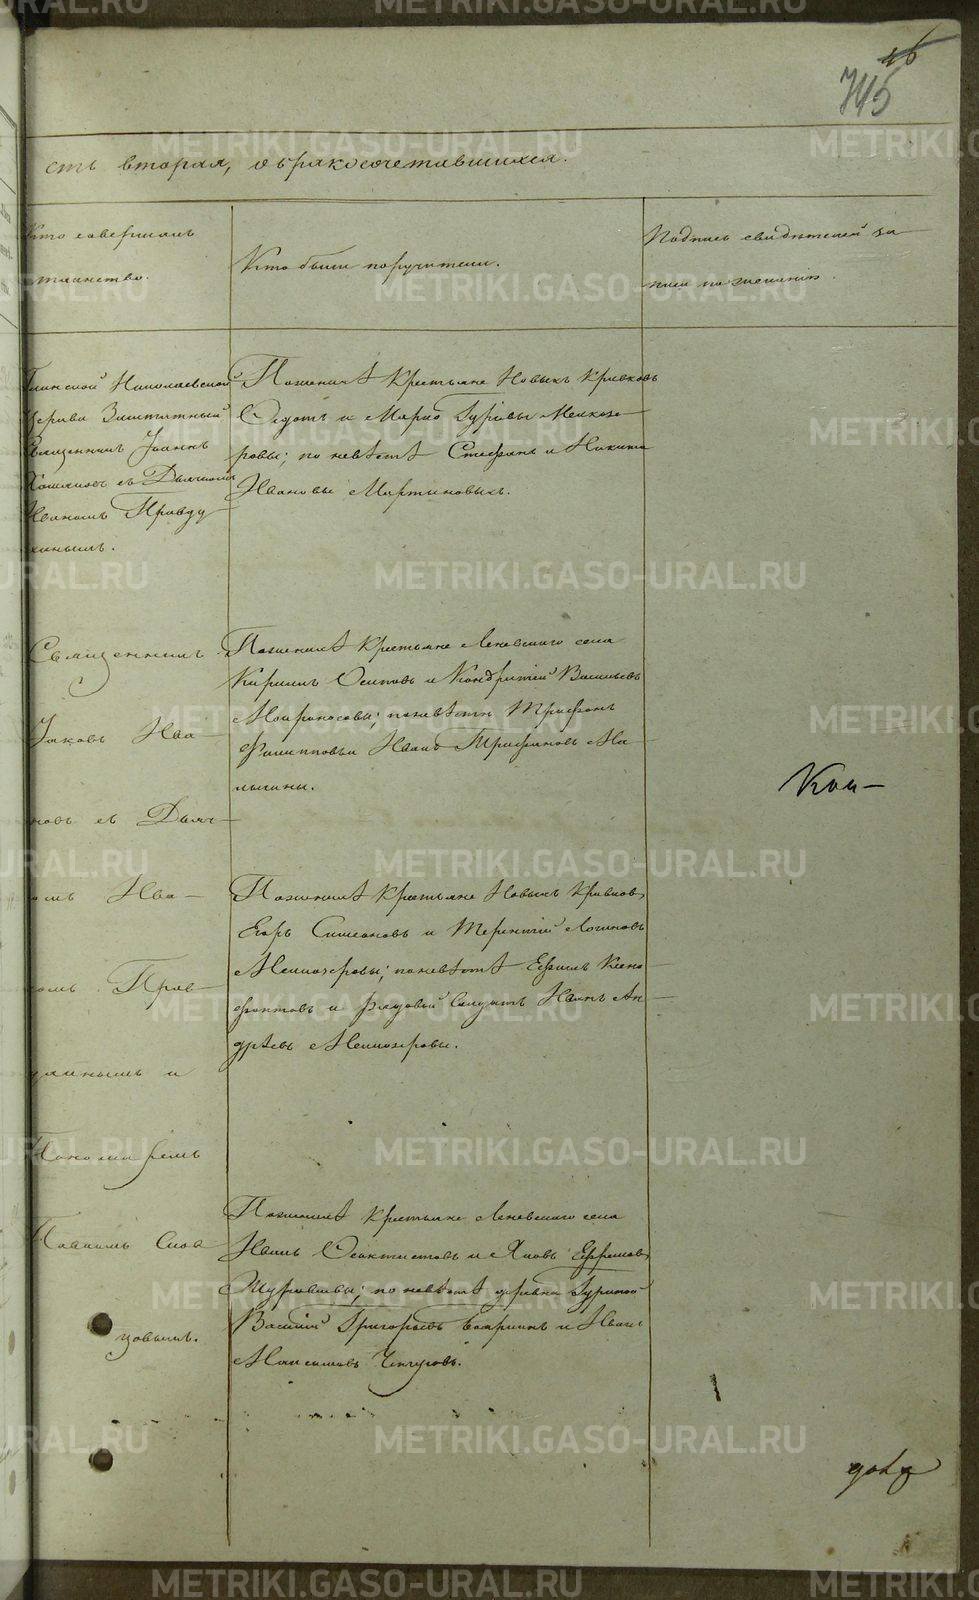 46
745
сть вторая, о бракосочетавшихся.
Кто совершалъ
таинство.
Кто были поручители.
Подпись свидѣтелей за-
писи по желанію.
Глинской Николаевской
Церкви Заштатный
Священникъ Іоаннъ
съ Дьячкомъ
Иваномъ Правду
хинымъ.
По женихѣ Крестьяне Новыхъ Кривковъ
Ѳедотъ и Марко Гурьевы Мелкозе-
ровы; по невѣстѣ Стефанъ и Никита
Ивановы Мартиновыхъ.
Священникъ
Іаковъ Ива-
новъ съ Дьяч-
комъ Ива-
номъ Прав-
духинымъ и
Пономаремъ
Павломъ Слов
цовымъ.
По женихѣ Крестьяне Леневскаго села
Кириллъ Осиповъ и Кондратій Васильевъ
Мокроносовы; по невѣстѣ Трифонъ
Филипповъ и Иванъ Трифановъ Ма-
лыгины.
По женихѣ Крестьяне Новыхъ Кривков,
Егоръ Симеоновъ и Терентій Логиновъ
Мелкозеровы; по невѣстѣ Ефимъ Ксено-
фонтовъ и рядовой Солдатъ Иванъ Ан-
дрѣевъ Мелкозеровы.
По женихѣ Крестьяне Леневскаго села
Иванъ Ѳеоктистовъ и Яковъ Ефремовъ
по невѣстѣ деревни Гуриной
Василій Григорьевъ и Иванъ
Максимовъ
Кои-
METRIKI.GASO-URAL.RU